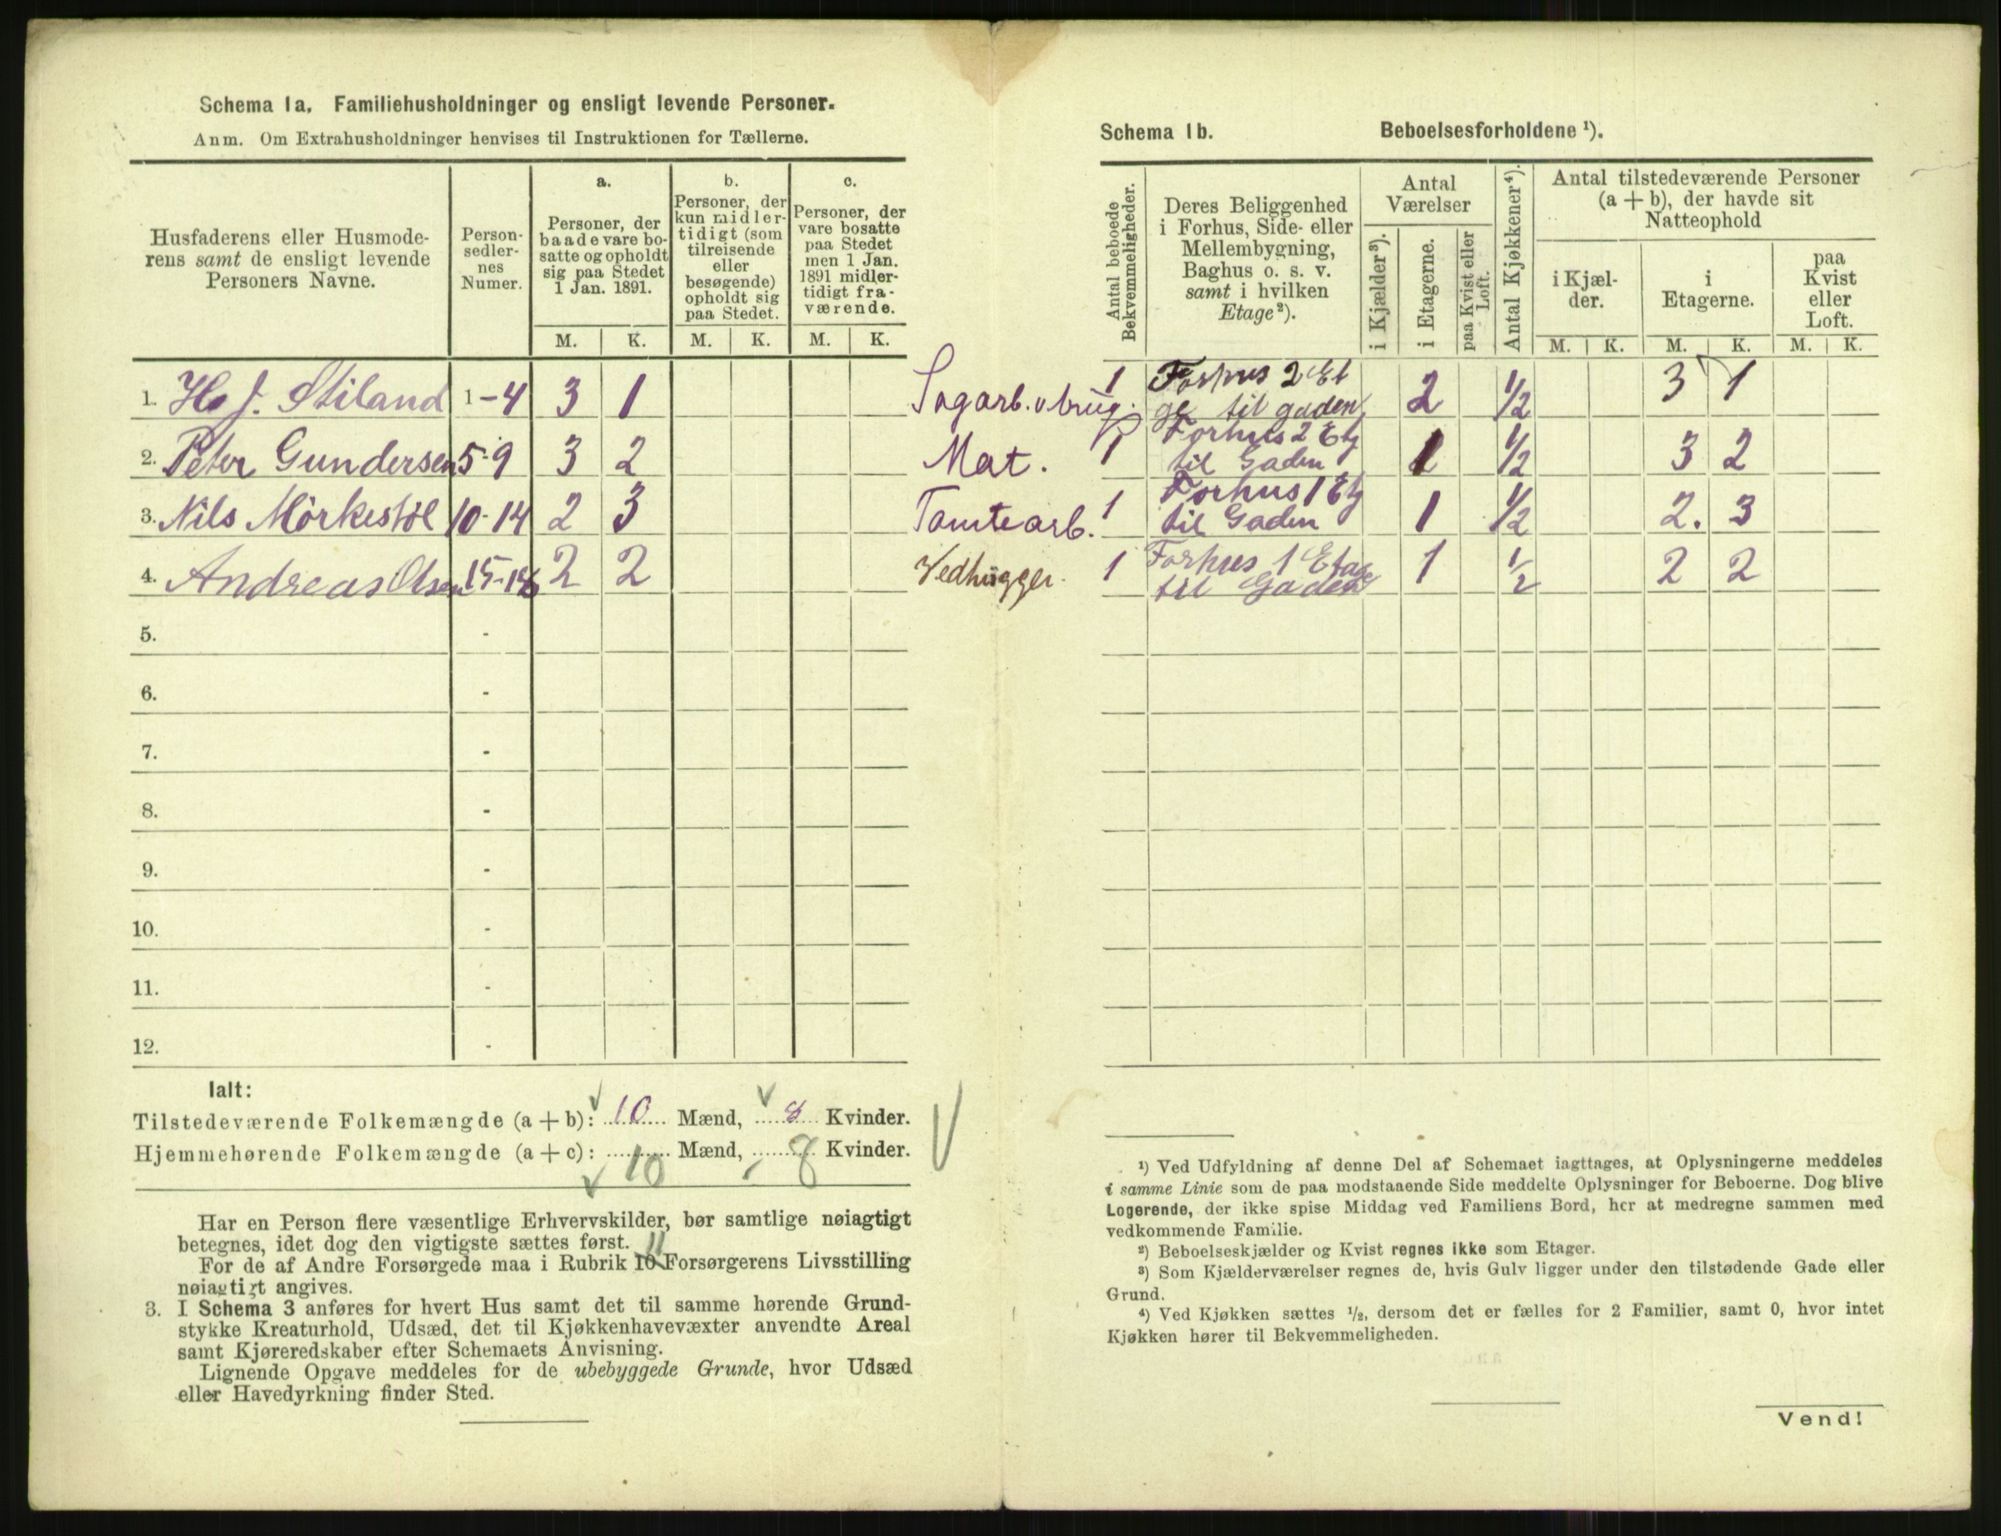 Schema 1a. Familiehusholdninger og ensligt levende Personer.
Anm. Om Extrahusholdninger henvises til Instruktionen for Tællerne.
Husfaderens eller Husmode-
rens samt de ensligt levende
Personers Navne.
Person-
sedler-
nes
Numer.
a.
Personer, der
baade vare bo-
satte og opholdt
sig paa Stedet
1 Jan. 1891.
b.
Personer, der
kun midler-
tidigt (som
tilreisende
eller
besøgende)
opholdt sig
paa Stedet.
c.
Personer, der
vare bosatte
paa Stedet
men 1 Jan.
1891 midler-
tidigt fra-
værende.
M. K. M. K. M. K.
1. H. J. Stiland 1-4 3 1 Sagarb. v brug.
2. Peter Gundersen 5-9 3 2 Mat.
3. Nils Mörkestöl 10-14 2 3 Tomtearb.
4. Andreas Olsen 15-18 2 2 Vedhugger.
5. -
6. -
7. -
8. -
9. -
10. -
11. -
12. -
Ialt:
Tilstedeværende Folkemængde (a + b): 10 Mænd, 8 Kvinder.
Hjemmehørende Folkemængde (a + c): 10 Mænd, 8 Kvinder.
Har en Person flere væsentlige Erhvervskilder, bør samtlige nøiagtigt
betegnes, idet dog den vigtigste sættes først.
11
For de af Andre Forsørgede maa i Rubrik 10 Forsørgerens Livsstilling
nøiagtigt angives.
3. I Schema 3 anføres for hvert Hus samt det til samme hørende Grund-
stykke Kreaturhold, Udsæd, det til Kjøkkenhavevæxter anvendte Areal
samt Kjøreredskaber efter Schemaets Anvisning.
Lignende Opgave meddeles for de ubebyggede Grunde, hvor Udsæd
eller Havedyrkning finder Sted.
Schema 1b. Beboelsesforholdene ¹).
Antal beboede
Bekvemmeligheder.
Deres Beliggenhed
i Forhus, Side- eller
Mellembygning,
Baghus o. s. v.
samt i hvilken
Etage²).
Antal
Værelser
i Kjælder³).
i Etagerne.
paa Kvist eller
Loft.
Antal Kjøkkener⁴).
Antal tilstedeværende Personer
(a + b), der havde sit
Natteophold
i Kjæl-
der.
i
Etagerne.
paa
Kvist
eller
Loft.
M. K. M. K. M. K.
1 Forhus 2 Et 2 1/2 3 1
ge til gaden
1 Forhus 2 Etg 1 1/2 3 2
til Gaden
1 Forhus 1 Etg 1 1/2 2. 3
til Gaden
1 Forhus 1 Etage 1 1/2 2 2
til Gaden
¹) Ved Udfyldning af denne Del af Schemaet iagttages, at Oplysningerne meddeles
i samme Linie som de paa modstaaende Side meddelte Oplysninger for Beboerne. Dog blive
Logerende, der ikke spise Middag ved Familiens Bord, her at medregne sammen med
vedkommende Familie.
²) Beboelseskjælder og Kvist regnes ikke som Etager.
³) Som Kjælderværelser regnes de, hvis Gulv ligger under den tilstødende Gade eller
Grund.
⁴) Ved Kjøkken sættes ½, dersom det er fælles for 2 Familier, samt 0, hvor intet
Kjøkken hører til Bekvemmeligheden.
Vend!